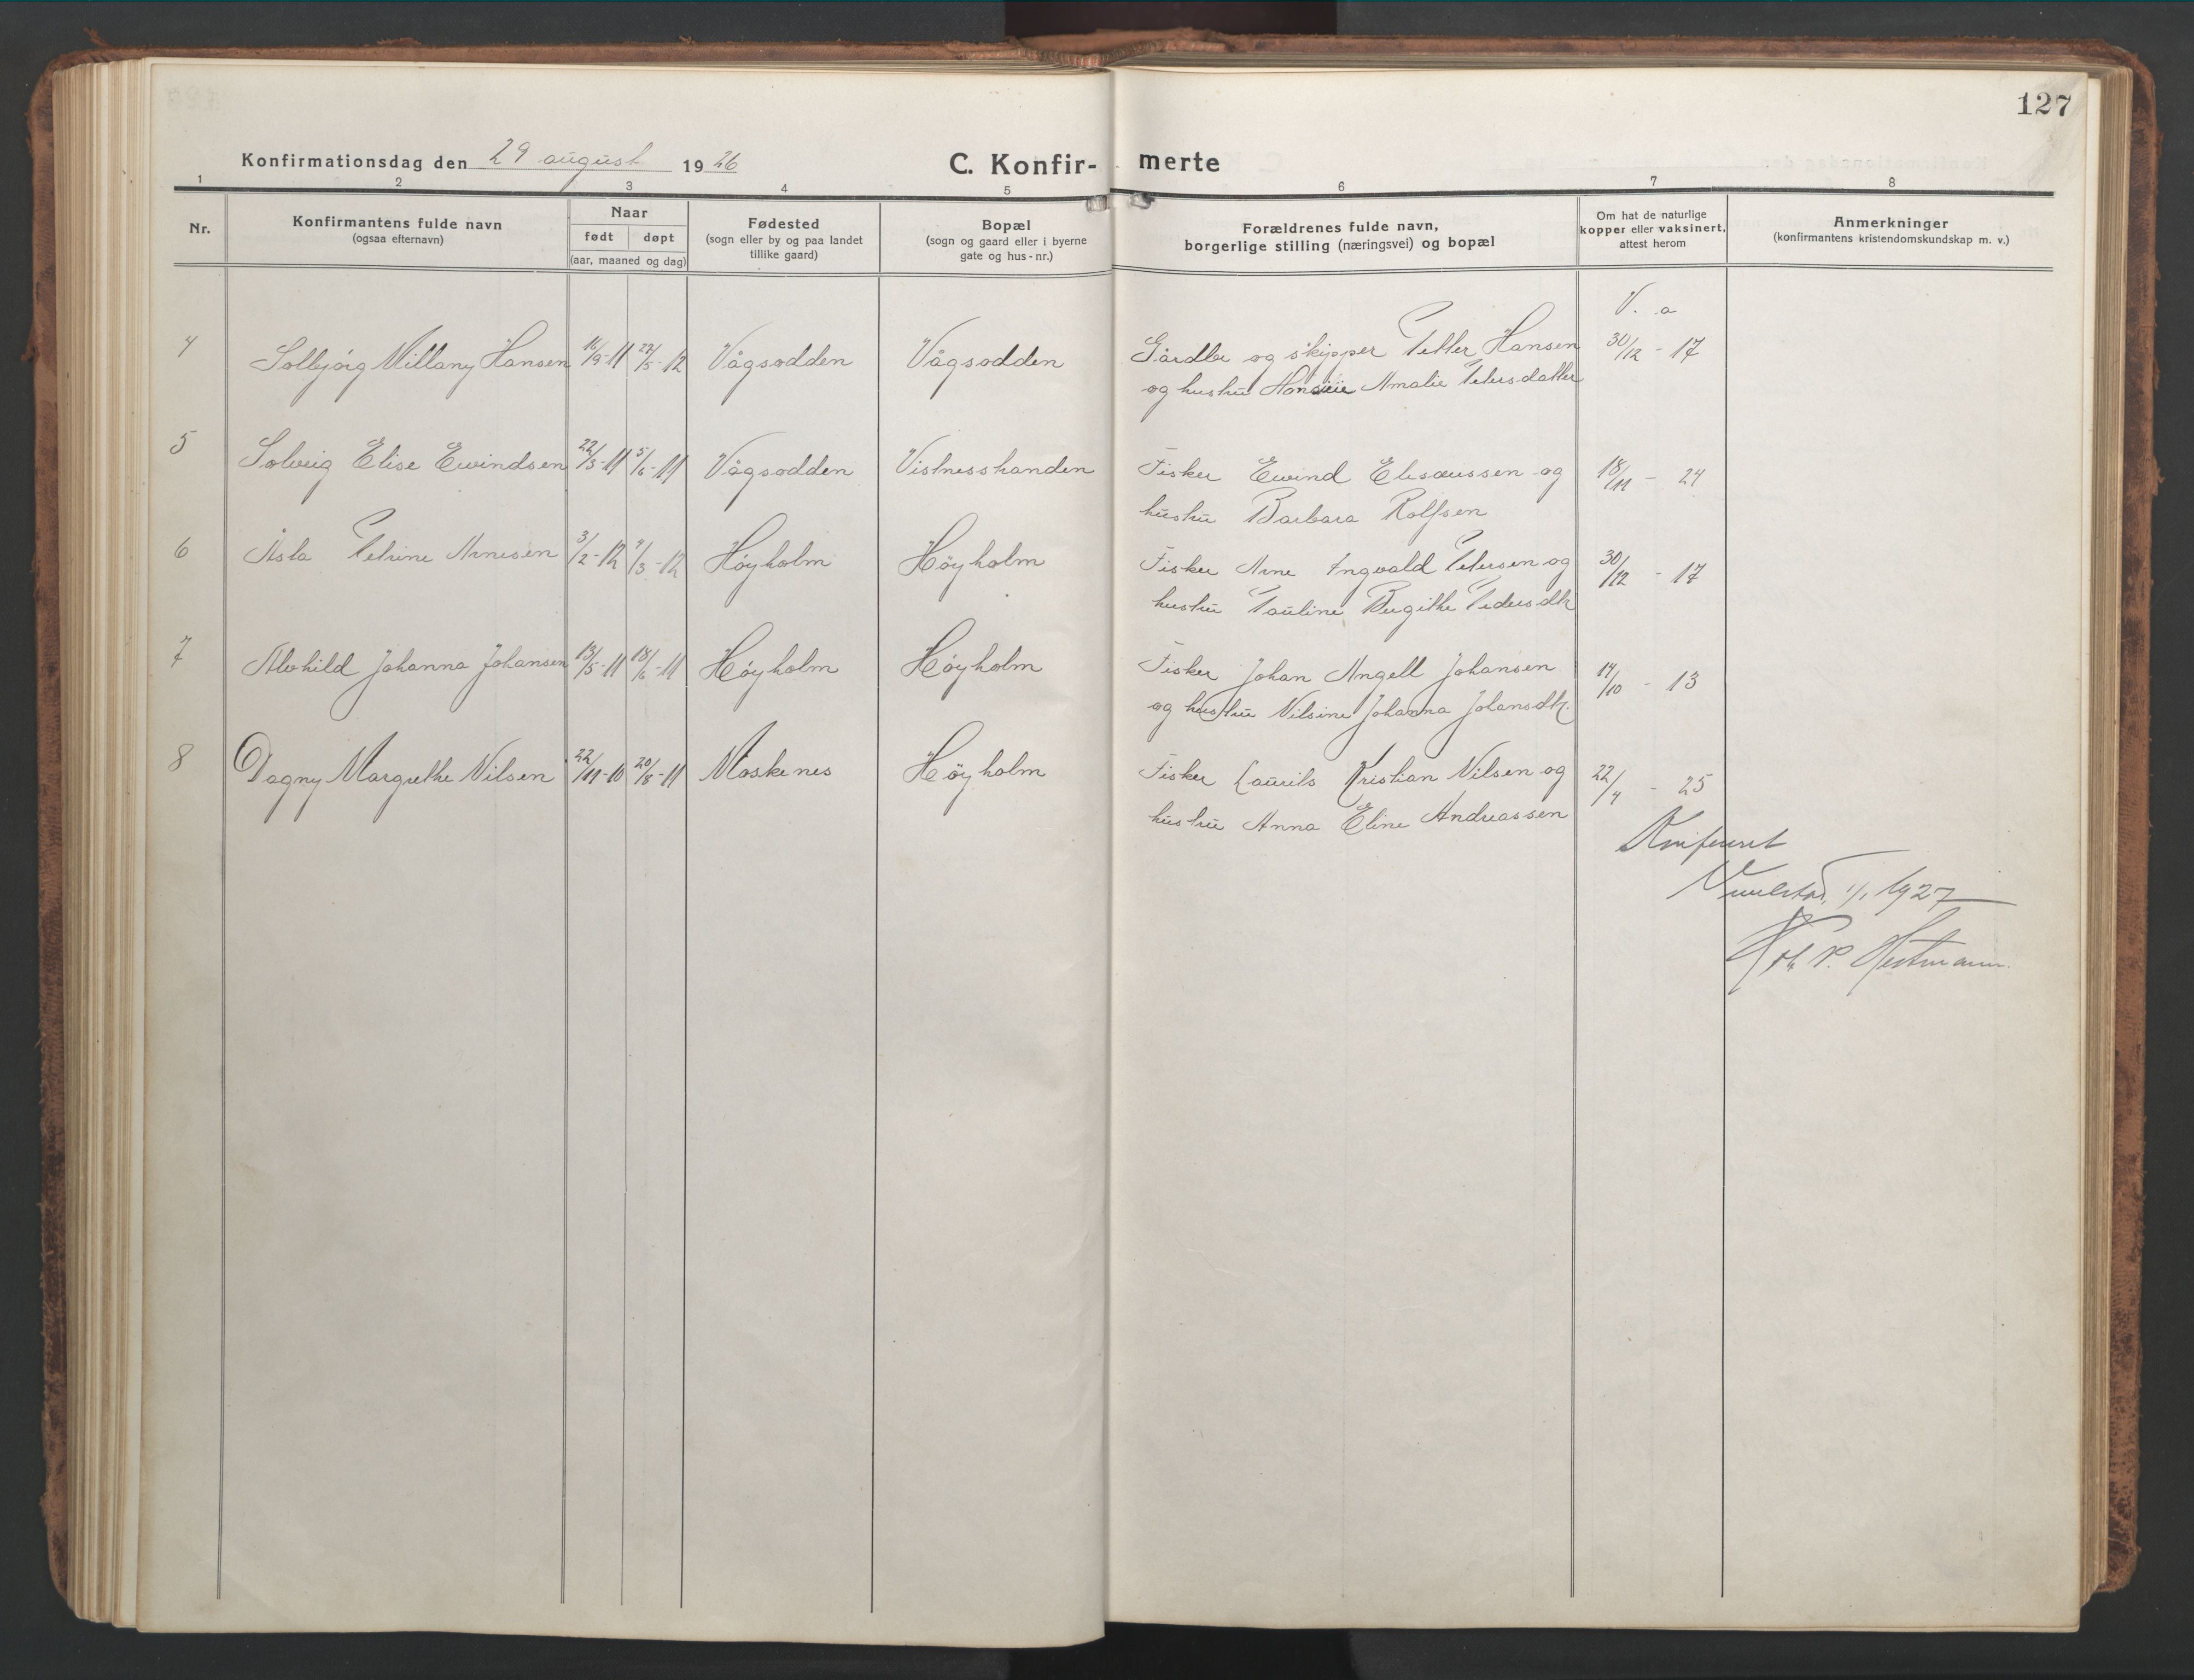 127
Konfirmationsdag den 29 august 1926 C. Konfir- merte
1 2 3 4 5 6 7 8
Nr.
Konfirmantens fulde navn
(ogsaa efternavn)
Naar
født døpt
(aar, maaned og dag)
Fødested
(sogn eller by og paa landet
tillike gaard)
Bopæl
(sogn og gaard eller i byerne
gate og hus-nr.)
Forældrenes fulde navn,
borgerlige stilling (næringsvei) og bopæl
Om hat de naturlige
kopper eller vaksinert,
attest herom
Anmerkninger
(konfirmantens kristendomskundskap m. v.)
V. a
4 Solbjørg Millany Hansen 16/9-11 27/5-12 Vågsodden Vågsodden Gårdbr og skipper Petter Hansen 30/12 - 17
og hustru Amalie Petersdatter
5 Solveig Elise Ewindsen 22/3-11 5/6-11 Vågsodden Vistnesstranden Fisker Ewind Elisæussen og 18/11 - 24
hustru Barbara Rolfsen
6 Asta Petrine Arnesen 3/2-12 4/3-12 Höyholm Höyholm Fisker Arne Ingvald Petersen og 30/12 - 17
hustru Pauline Birgithe Pedersdtr
7 Alvhild Johanna Johansen 13/5-11 18/6-11 Höyholm Höyholm Fisker Johan Angell Johansen 14/10 - 13
og hustru Nilsine Johanna Johansdtr.
8 Dagny Margrethe Nilsen 22/11-10 20/8-11 Moskenes Höyholm Fisker Laurits Kristian Nilsen og 22/4 - 25
hustru Anna Eline Andreassen
Konferert
1/1 1927
P. Hestmann.